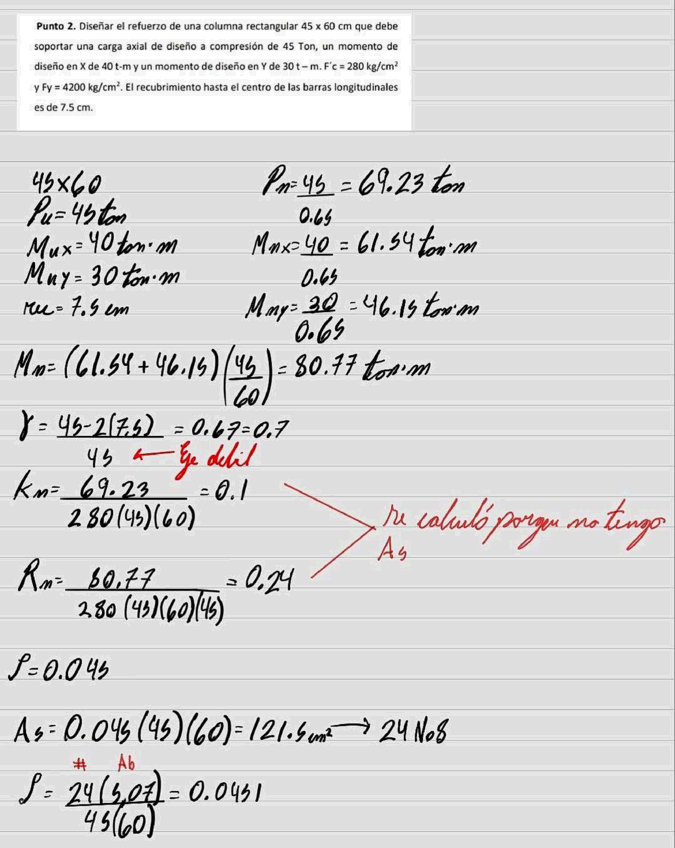 Punto 2. Diseñar el refuerzo de una columna rectangular 45 x 60 cm que debe
soportar una carga axial de diseño a compresión de 45 Ton, un momento de
diseño en X de 40 t-m y un momento de diseño en Y de 30 t – m. F´c = 280 kg/cm²
y Fy = 4200 kg/cm². El recubrimiento hasta el centro de las barras longitudinales
es de 7.5 cm.
45x60
Pu=45 ton
Mux=40 ton·m
Muy=30 ton·m
rec=7.5 cm
Pn=45/0.65 = 69.23 ton
Mnx=40/0.65 = 61.54 ton·m
Mny=30/0.65 = 46.15 ton·m
Mn=(61.54+46.15)(45/60)=80.77 ton·m
γ=45-2(7.5)/45 = 0.67=0.7
← Eje debil
Kn=69.23/280(45)(60) =0.1
Rn=80.77/280(45)(60)(45) = 0.24
se calculó porque no tengo
As
ρ=0.045
As=0.045(45)(60)=121.5cm² → 24 No8
# Ab
ρ=24(5,07)/45(60) = 0.0451